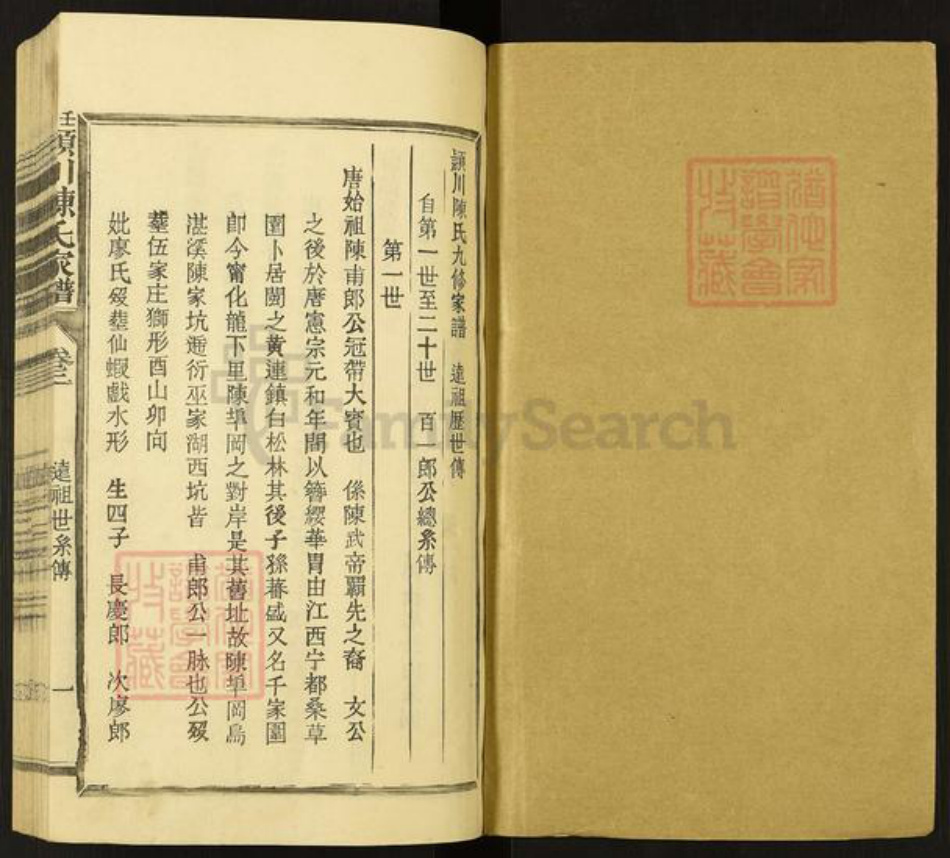 潁川陳氏九修家譜 遠祖歷世傳
自第一世至二十世 百一郎公總系傳
第一世
唐始祖陳甫郎公冠帶大賓也 係陳武帝霸先之裔 文公
之後於唐憲宗元和年間以簪纓華胄由江西宁都桑草
園卜居閩之黃連鎮白松林其後子孫蕃盛又名千家園
卽今甯化龍下里陳埠岡之對岸是其舊址故陳埠岡烏
湛溪陳家坑遷衍巫家湖西坑皆 甫郎公一脉也公歿
塟伍家庄獅形酉山卯向
妣廖氏歿塟仙蝦戲水形 生四子 長慶郎 次廖郎
潁川陳氏家譜 卷三 遠祖世系傳 一
猶他家譜學會收藏
猶他家譜學會收藏
FamilySearch